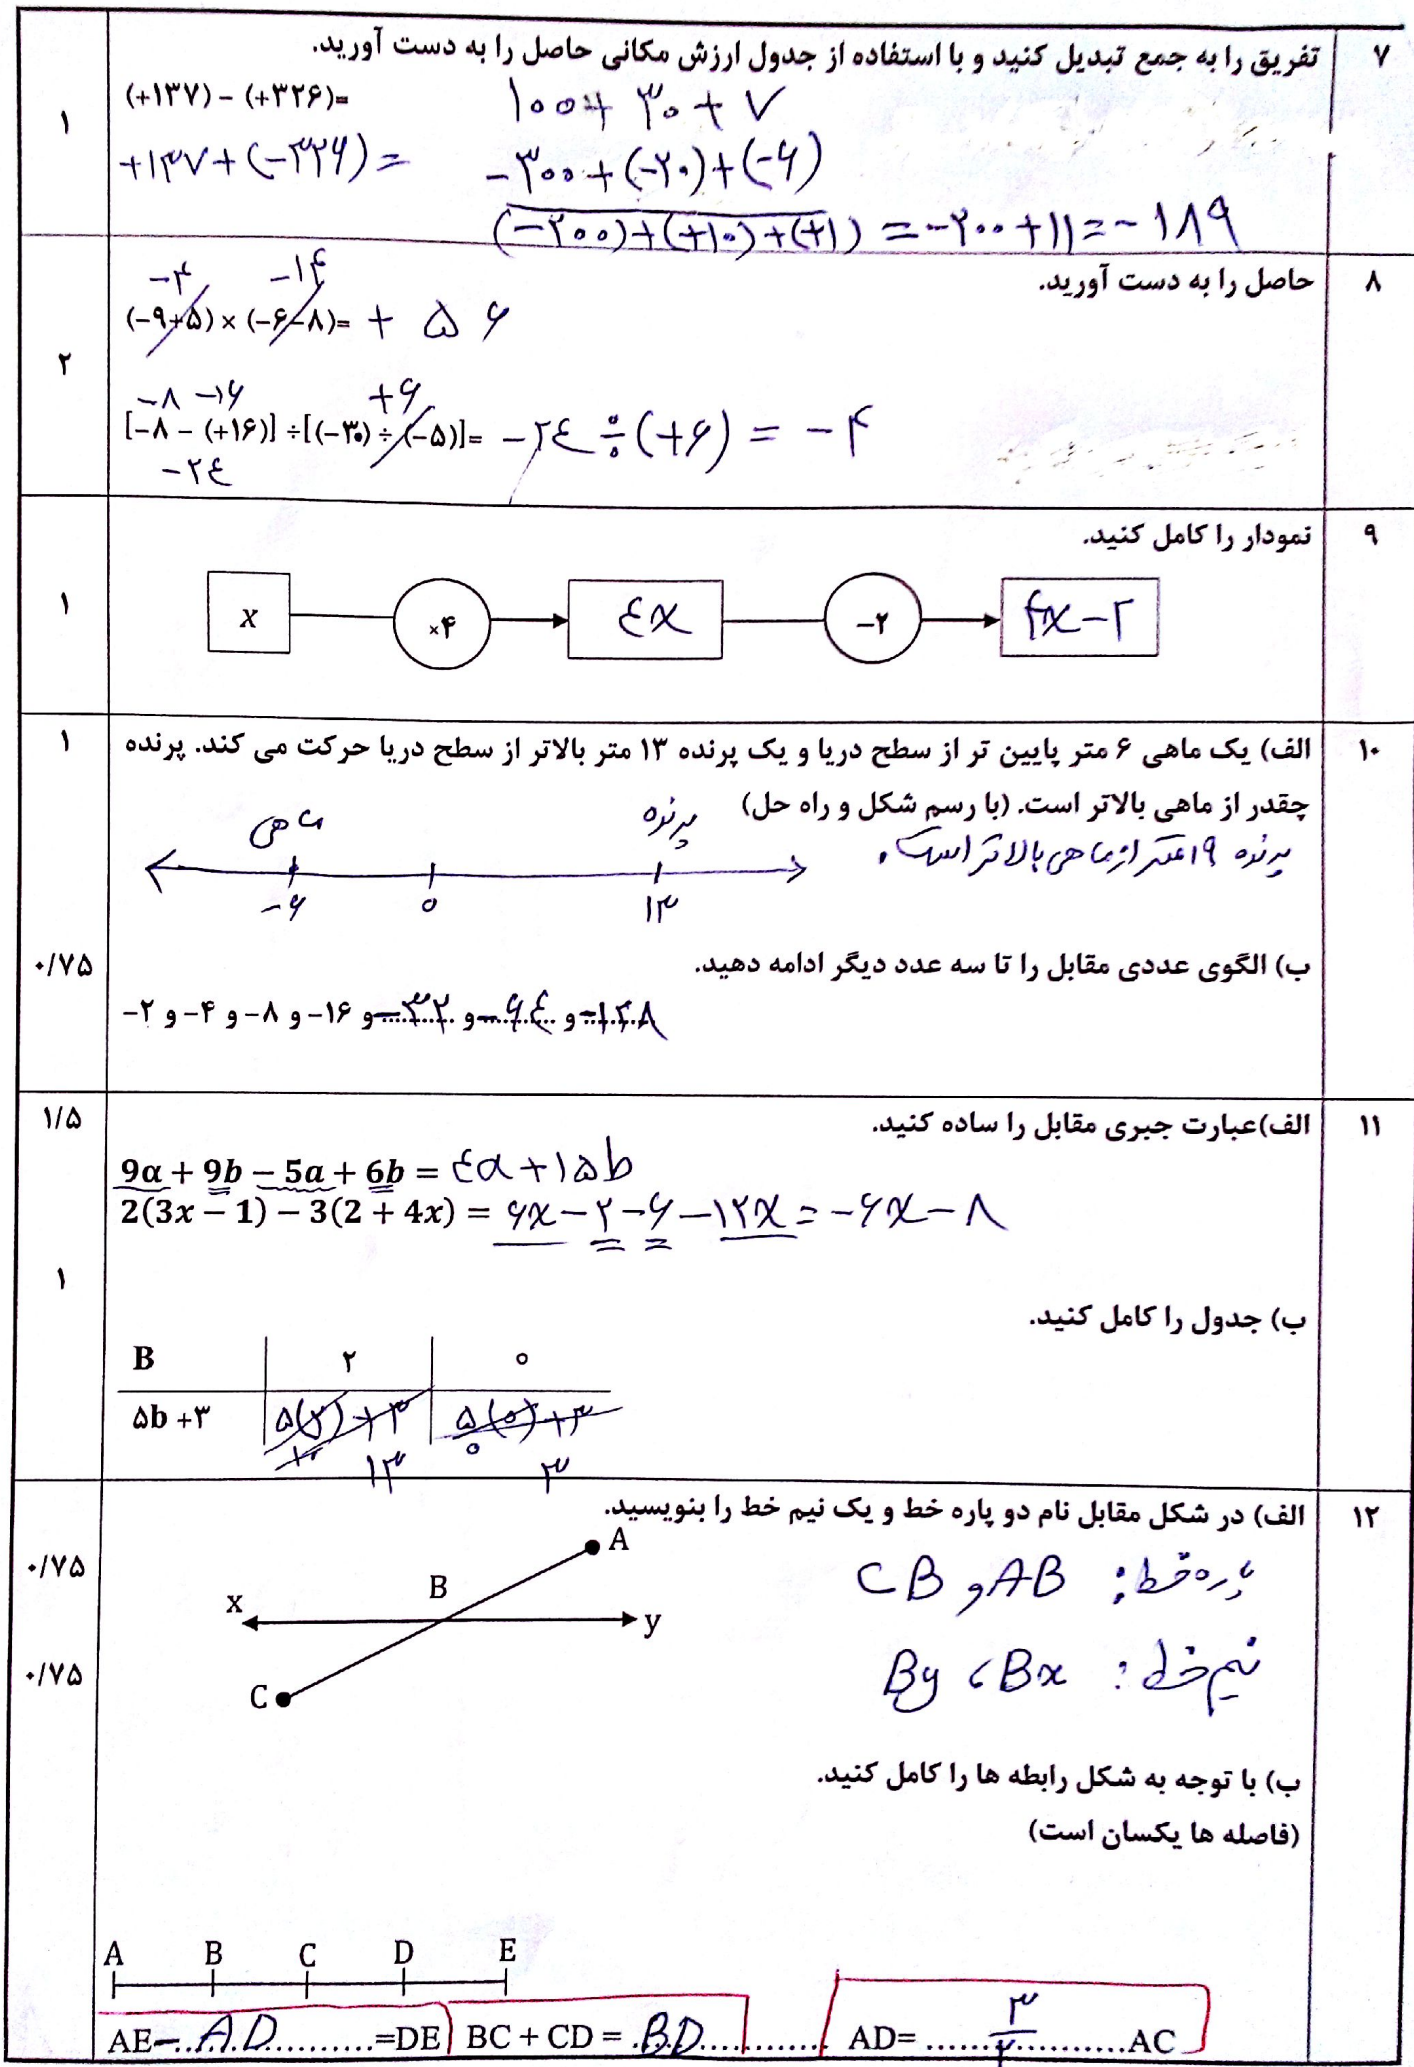 ۷ تفریق را به جمع تبدیل کنید و با استفاده از جدول ارزش مکانی حاصل را به دست آورید.
۱
(+۱۳۷) − (+۳۲۶)=
۱۰۰+ ۳۰ + ۷
+۱۳۷+(−۳۲۶) =
−۳۰۰+(−۲۰)+(−۶)
(−۲۰۰)+(+۱۰)+(+۱) = −۲۰۰+۱۱=−۱۸۹
۸ حاصل را به دست آورید.
۲
−۴ −۱۴
(−۹+۵) × (−۶−۸)= + ۵۶
−۸ −۱۶ +۶
[−۸ − (+۱۶)] ÷[(−۳۰) ÷ (−۵)]= −۲٤ ÷(+۶) = −۴
−۲٤
۹ نمودار را کامل کنید.
۱
x ×۴ ٤x −۲ ۴x−۲
۱۰ الف) یک ماهی ۶ متر پایین تر از سطح دریا و یک پرنده ۱۳ متر بالاتر از سطح دریا حرکت می کند. پرنده ۱
چقدر از ماهی بالاتر است. (با رسم شکل و راه حل)
ماهی پرنده
پرنده ۱۹ متر از ماهی بالاتر است.
−۶ ۰ ۱۳
ب) الگوی عددی مقابل را تا سه عدد دیگر ادامه دهید. ۰/۷۵
−۲ و −۴ و −۸ و −۱۶ و −۳۲ و −۶٤ و −۱۲۸
۱۱ الف)عبارت جبری مقابل را ساده کنید. ۱/۵
9a + 9b − 5a + 6b = ٤a+۱۵b
2(3x − 1) − 3(2 + 4x) = ۶x−۲−۶−۱۲x = −۶x−۸
۱
ب) جدول را کامل کنید.
B ۲ ۰
۵b +۳ ۵(۲)+۳ ۵(۰)+۳
۱۰ ۱۳ ۰ ۳
۱۲ الف) در شکل مقابل نام دو پاره خط و یک نیم خط را بنویسید.
۰/۷۵
A
پاره خط: AB و CB
B
x y
نیم خط: Bx ، By
۰/۷۵
C
ب) با توجه به شکل رابطه ها را کامل کنید.
(فاصله ها یکسان است)
A B C D E
AE−..AD..........=DE BC + CD = .BD............ AD= ......۳/۲..........AC